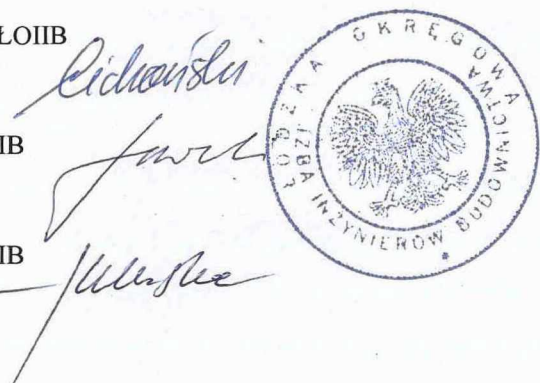 ŁOIIB
Cichoński
IIB
IIB
ŁÓDZKA OKRĘGOWA
IZBA INŻYNIERÓW BUDOWNICTWA